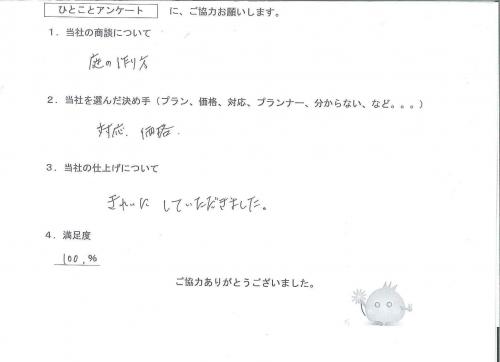 ひとことアンケート に、ご協力お願いします。
1．当社の商談について
庭の作り方
2．当社を選んだ決め手（プラン、価格、対応、プランナー、分からない、など。。。）
対応、価格．
3．当社の仕上げについて
きれいに していただきました。
4．満足度
100．%
ご協力ありがとうございました。